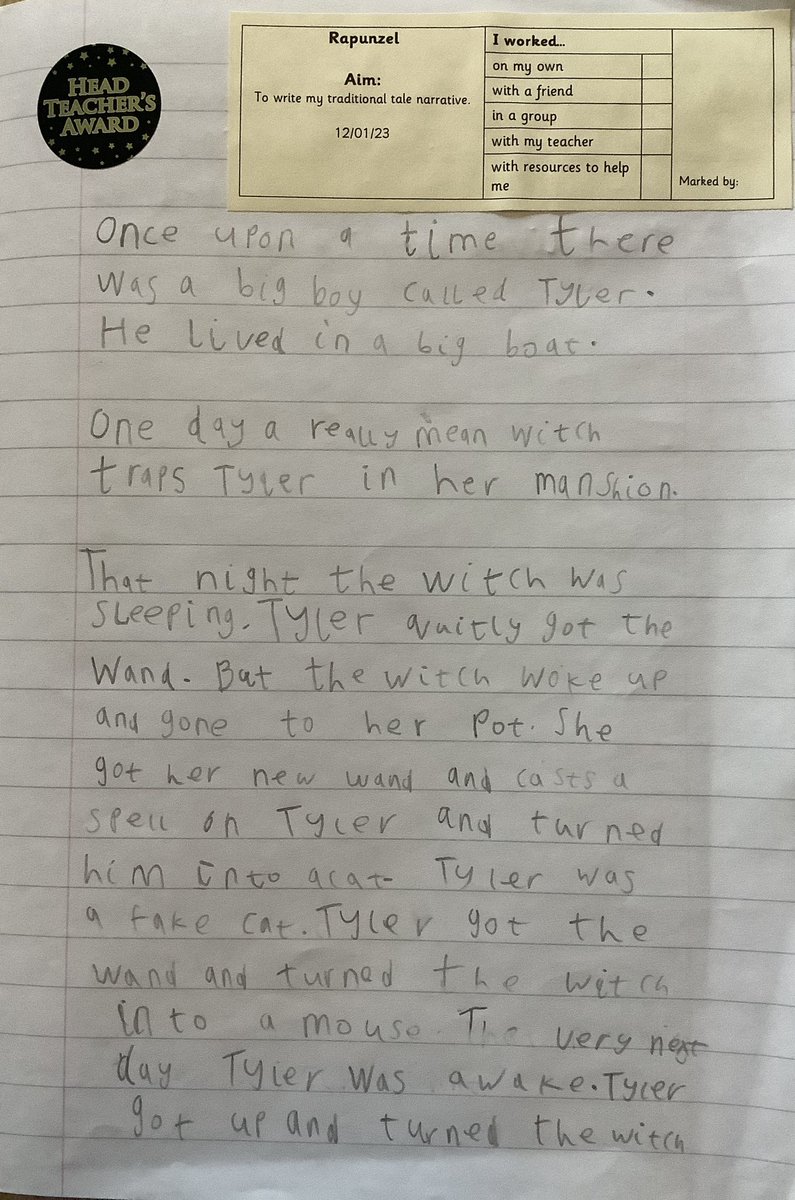 HEAD
TEACHER'S
AWARD
Rapunzel
Aim:
To write my traditional tale narrative.
12/01/23
I worked...
on my own
with a friend
in a group
with my teacher
with resources to help
me
Marked by:
Once upon a time there
was a big boy called Tyler.
He lived in a big boat.
One day a really mean witch
traps Tyler in her manshion.
That night the witch was
sleeping. Tyler quitly got the
wand. But the witch woke up
and gone to her pot. She
got her new wand and casts a
spell on Tyler and turned
him into a cat Tyler was
a fake cat. Tyler got the
wand and turned the witch
into a mouse. The very next
day Tyler was awake. Tyler
got up and turned the witch